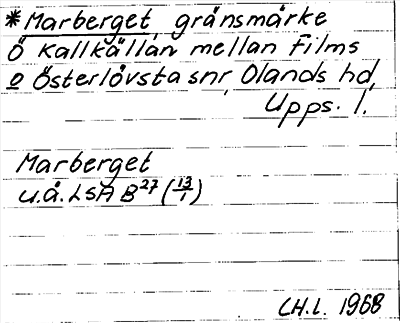 *Marberget, gränsmärke
Ö Kallkällan mellan Films
o Österlövsta snr, Olands hd,
Upps. l.
Marberget
u.å. LSA B27 (13/1)
CH.L. 1968